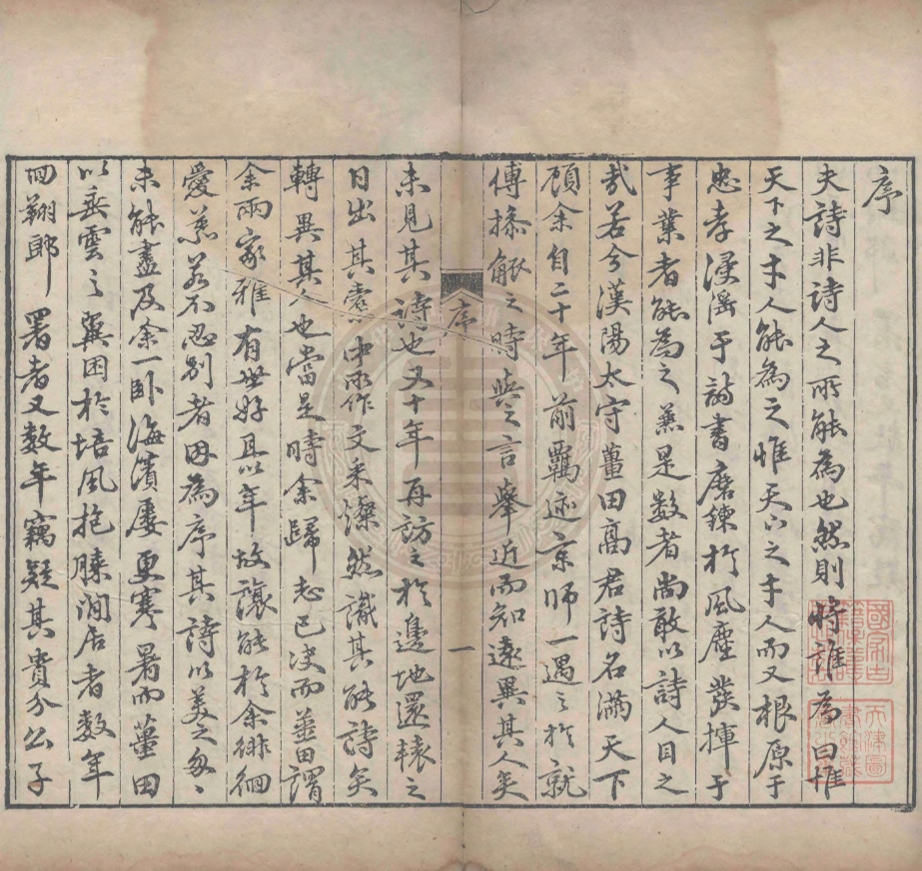 序
夫詩非詩人之所能為也然則將誰為曰惟
天下之才人能為之惟天下之才人而又根原于
忠孝浸滛于詩書磨鍊於風塵發揮于
事業者能為之兼是数者尚敢以詩人目之
哉若今漢陽太守薑田高君詩名滿天下
顧余自二十年前羈迹京師一遇之於就
傅操觚之時與之言舉近而知遠異其人矣
序
一
未見其詩也又十年再訪之於邊地還轅之
日出其橐中所作文采燦然識其能詩矣
轉異其人也當是時余歸志已决而薑田謂
余兩家雅有世好且以年故讓能於余徘徊
愛慕若不忍别者因為序其詩以美之匆〻
未能盡及余一卧海濱屢更寒暑而薑田
以垂雲之翼困於培風抱膝澗居者数年
回翔郎署者又数年竊疑其貴介公子
國家古籍
天津圖書館藏